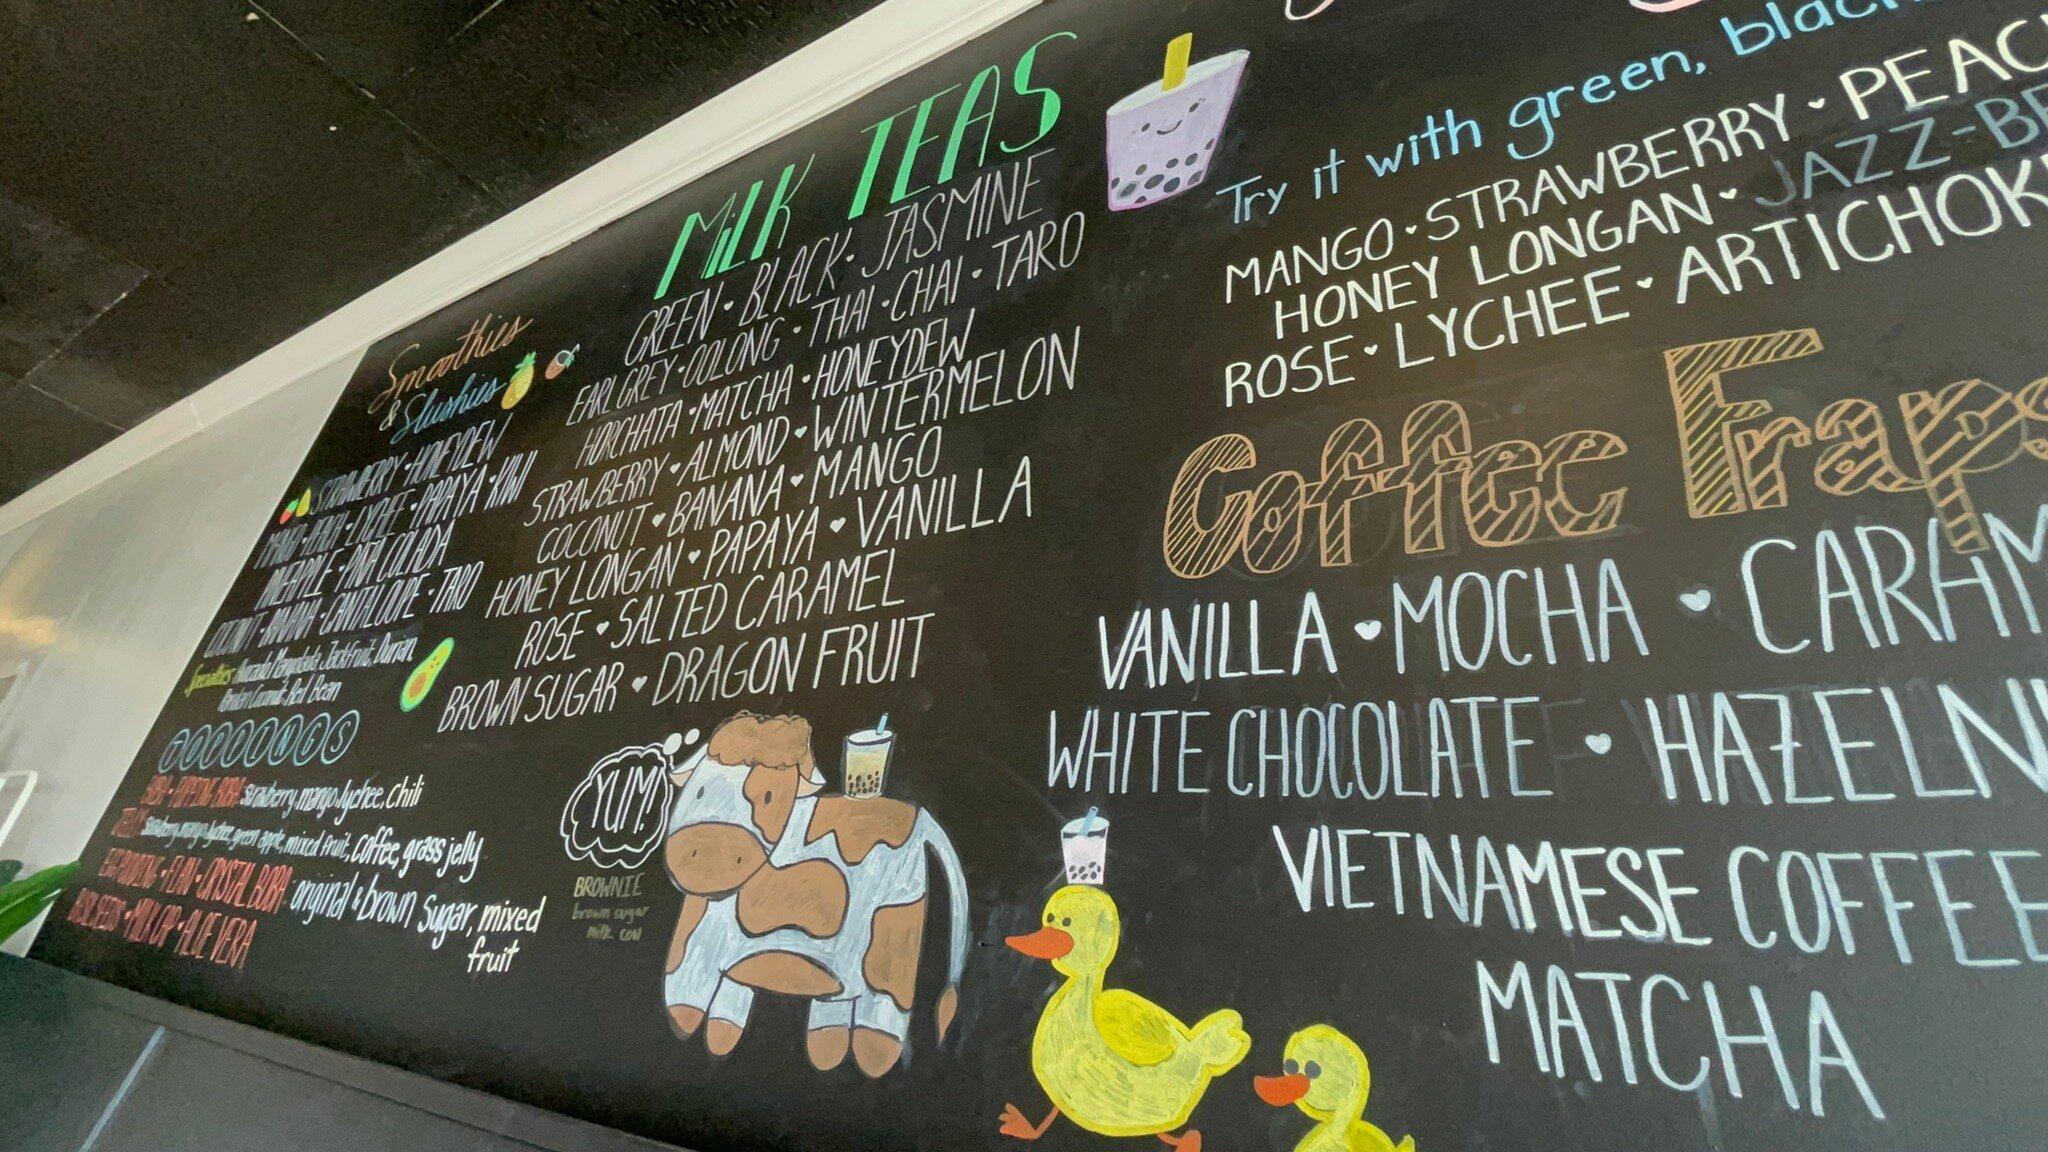 Smoothies
& Slushies
STRAWBERRY · HONEYDEW
MANGO · PEACH · LYCHEE · PAPAYA · KIWI
PINEAPPLE · PIÑA COLADA
COCONUT · BANANA · CANTALOUPE · TARO
Specialties: Avocado, Mangodada, Jackfruit, Durian,
Coconut, Red Bean
TOPPINGS
BOBA · POPPING BOBA strawberry, mango, lychee, chili
JELLY strawberry, mango, lychee, green apple, mixed fruit, coffee, grass jelly
EGG PUDDING · FLAN · CRYSTAL BOBA original & brown sugar, mixed
fruit
BASIL SEEDS · MILK CAP · ALOE VERA
MILK TEAS
GREEN · BLACK · JASMINE
EARL GREY · OOLONG · THAI · CHAI · TARO
HORCHATA · MATCHA · HONEYDEW
STRAWBERRY · ALMOND · WINTERMELON
COCONUT · BANANA · MANGO
HONEY LONGAN · PAPAYA · VANILLA
ROSE · SALTED CARAMEL
BROWN SUGAR · DRAGON FRUIT
YUM!
BROWNIE
brown sugar
milk cow
Try it with green, black
MANGO · STRAWBERRY · PEAC
HONEY LONGAN · JAZZ-BE
ROSE · LYCHEE · ARTICHOK
Coffee Fraps
VANILLA · MOCHA · CARAM
WHITE CHOCOLATE · HAZELN
VIETNAMESE COFFEE
MATCHA